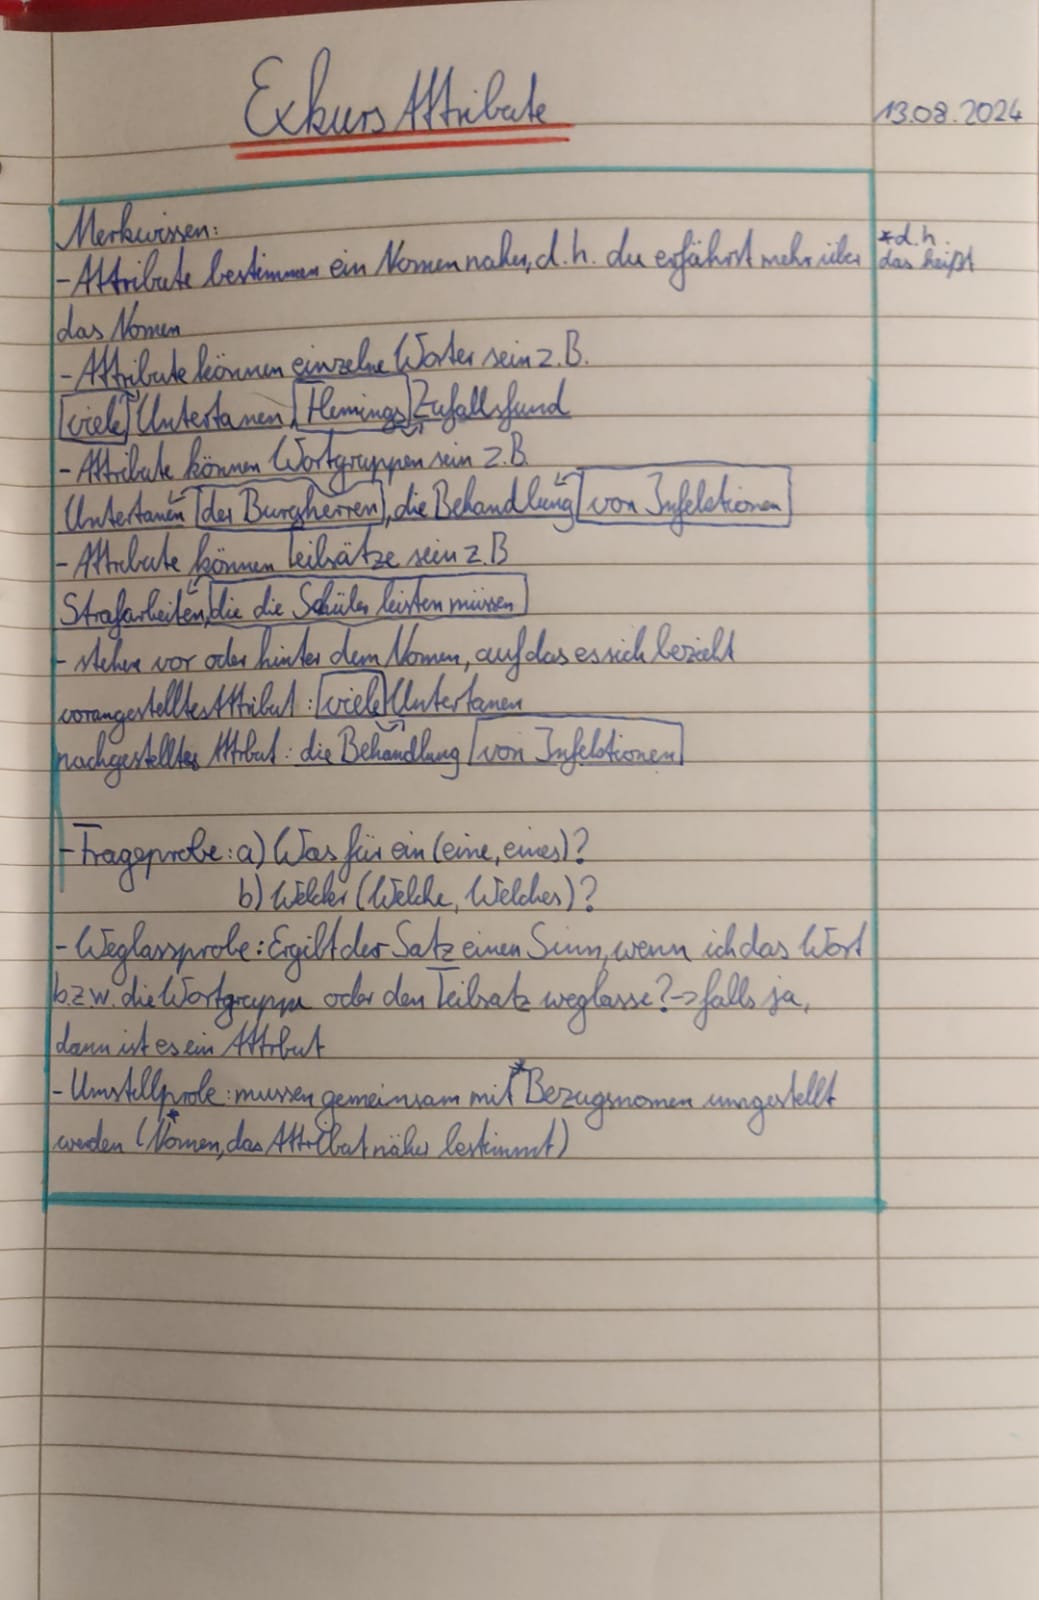 Exkurs Attribute
13.08.2024
Merkwissen:
- Attribute bestimmen ein Nomen näher, d.h. du erfährst mehr über
*d.h.
das heißt
das Nomen
- Attribute können einzelne Wörter sein z.B.
viele Untertanen, Flemings Zufallsfund
- Attribute können Wortgruppen sein z.B.
Untertanen des Burgherren, die Behandlung von Infektionen
- Attribute können Teilsätze sein z.B
Strafarbeiten, die die Schüler leisten müssen
- stehen vor oder hinter dem Nomen, auf das es sich bezieht
vorangestelltes Attribut: viele Untertanen
nachgestelltes Attribut: die Behandlung von Infektionen
- Frageprobe: a) Was für ein (eine, eines)?
b) Welcher (Welche, Welches)?
- Weglassprobe: Ergibt der Satz einen Sinn, wenn ich das Wort
bzw. die Wortgruppe oder den Teilsatz weglasse? -> falls ja,
dann ist es ein Attribut
- Umstellprobe: müssen gemeinsam mit *Bezugsnomen umgestellt
werden (*Nomen, das Attribut näher bestimmt)